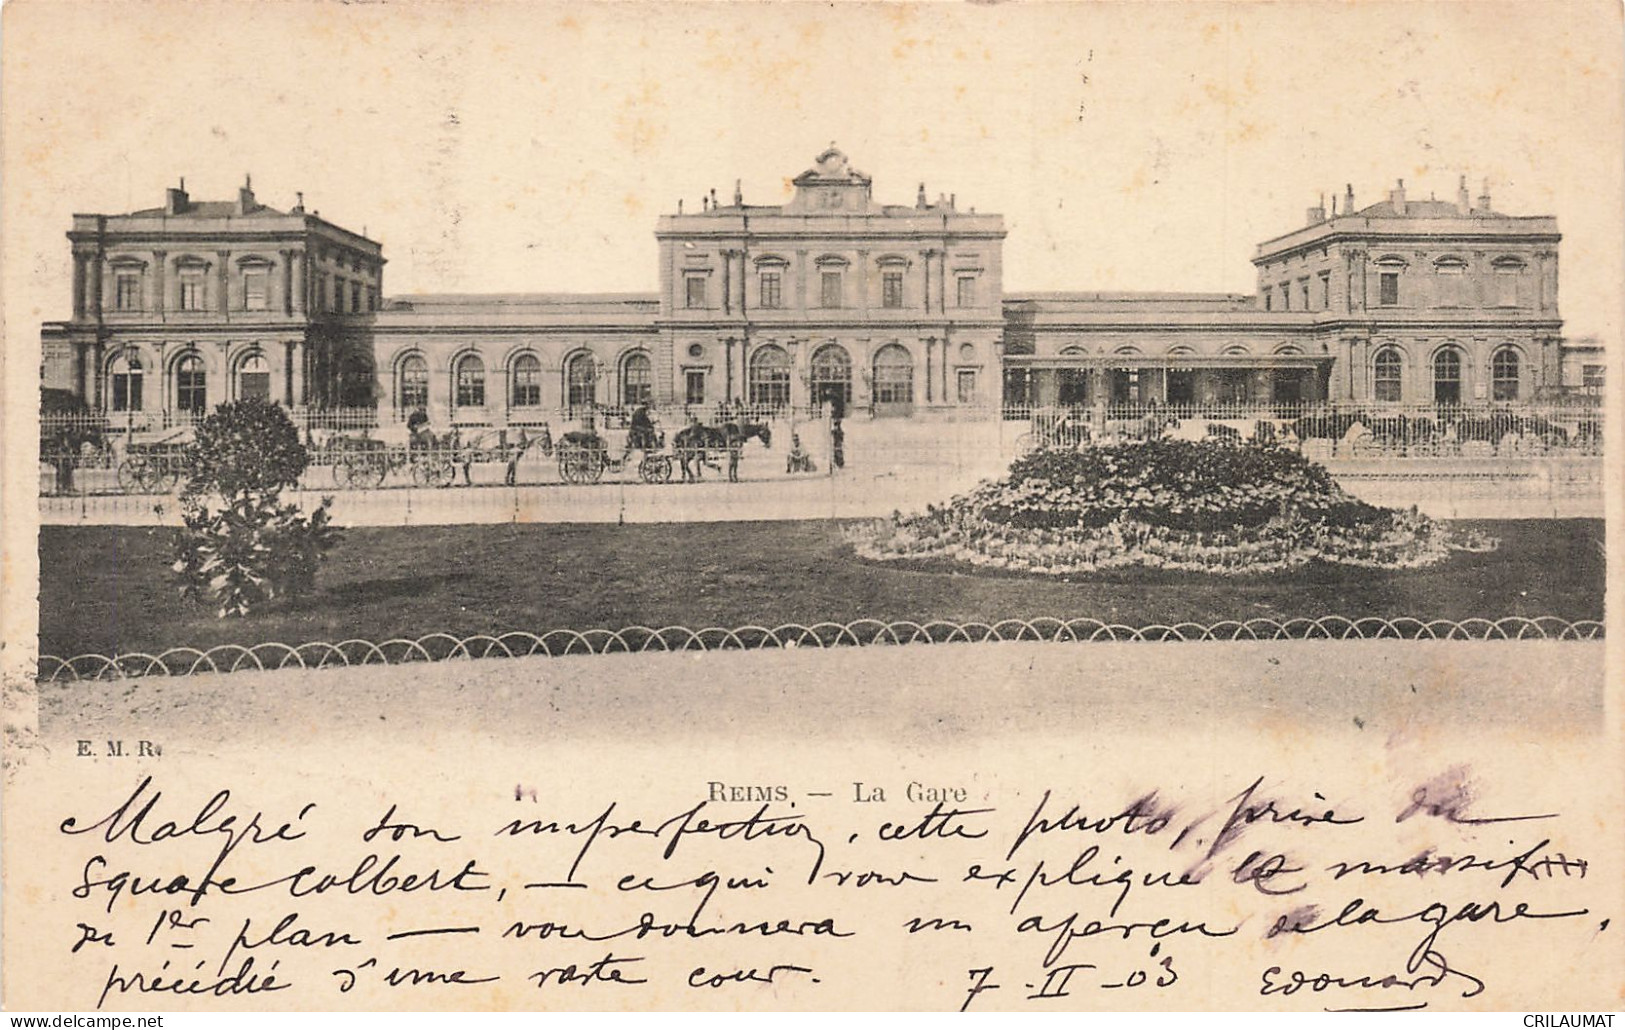 E. M. R.
REIMS — La Gare
Malgré son imperfection, cette photo, prise du
Square Colbert, — ce qui vous explique le massif
du 1er plan — vous donnera un aperçu de la gare,
précédée d'une vaste cour. 7-II-03 Edouard
CRILAUMAT